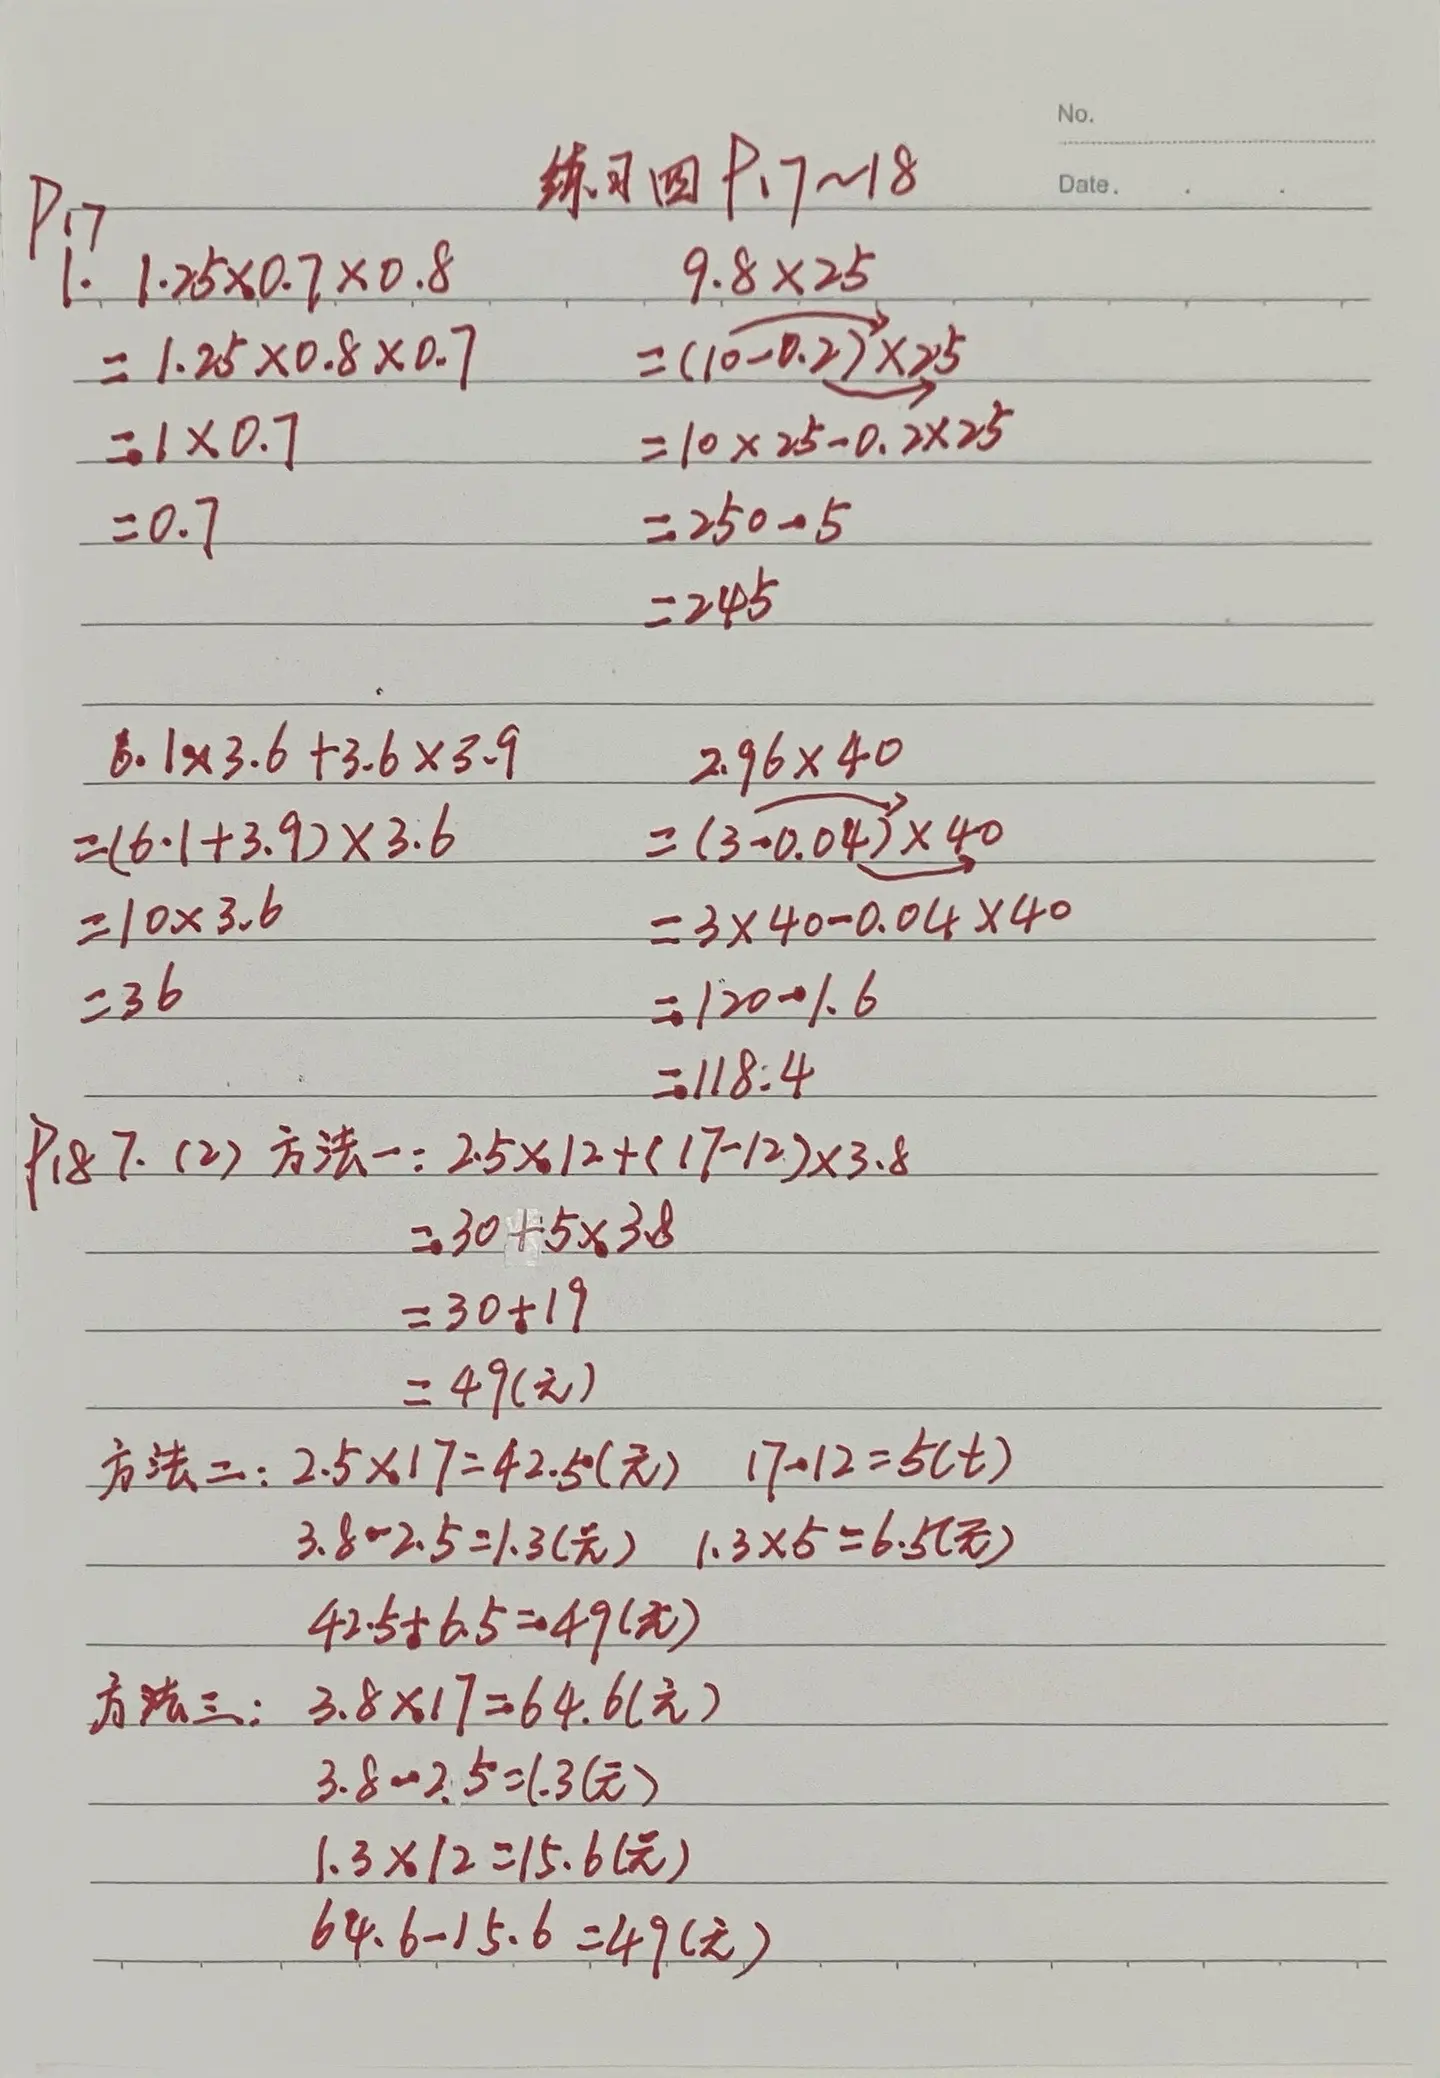 No.
Date.
练习四 P.17~18
P.17
1. 1.25×0.7×0.8
=1.25×0.8×0.7
=1×0.7
=0.7
9.8×25
=(10-0.2)×25
=10×25-0.2×25
=250-5
=245
6.1×3.6+3.6×3.9
=(6.1+3.9)×3.6
=10×3.6
=36
2.96×40
=(3-0.04)×40
=3×40-0.04×40
=120-1.6
=118.4
P.18 7.(2)方法一:2.5×12+(17-12)×3.8
=30+5×3.8
=30+19
=49(元)
方法二:2.5×17=42.5(元) 17-12=5(t)
3.8-2.5=1.3(元) 1.3×5=6.5(元)
42.5+6.5=49(元)
方法三:3.8×17=64.6(元)
3.8-2.5=1.3(元)
1.3×12=15.6(元)
64.6-15.6=49(元)